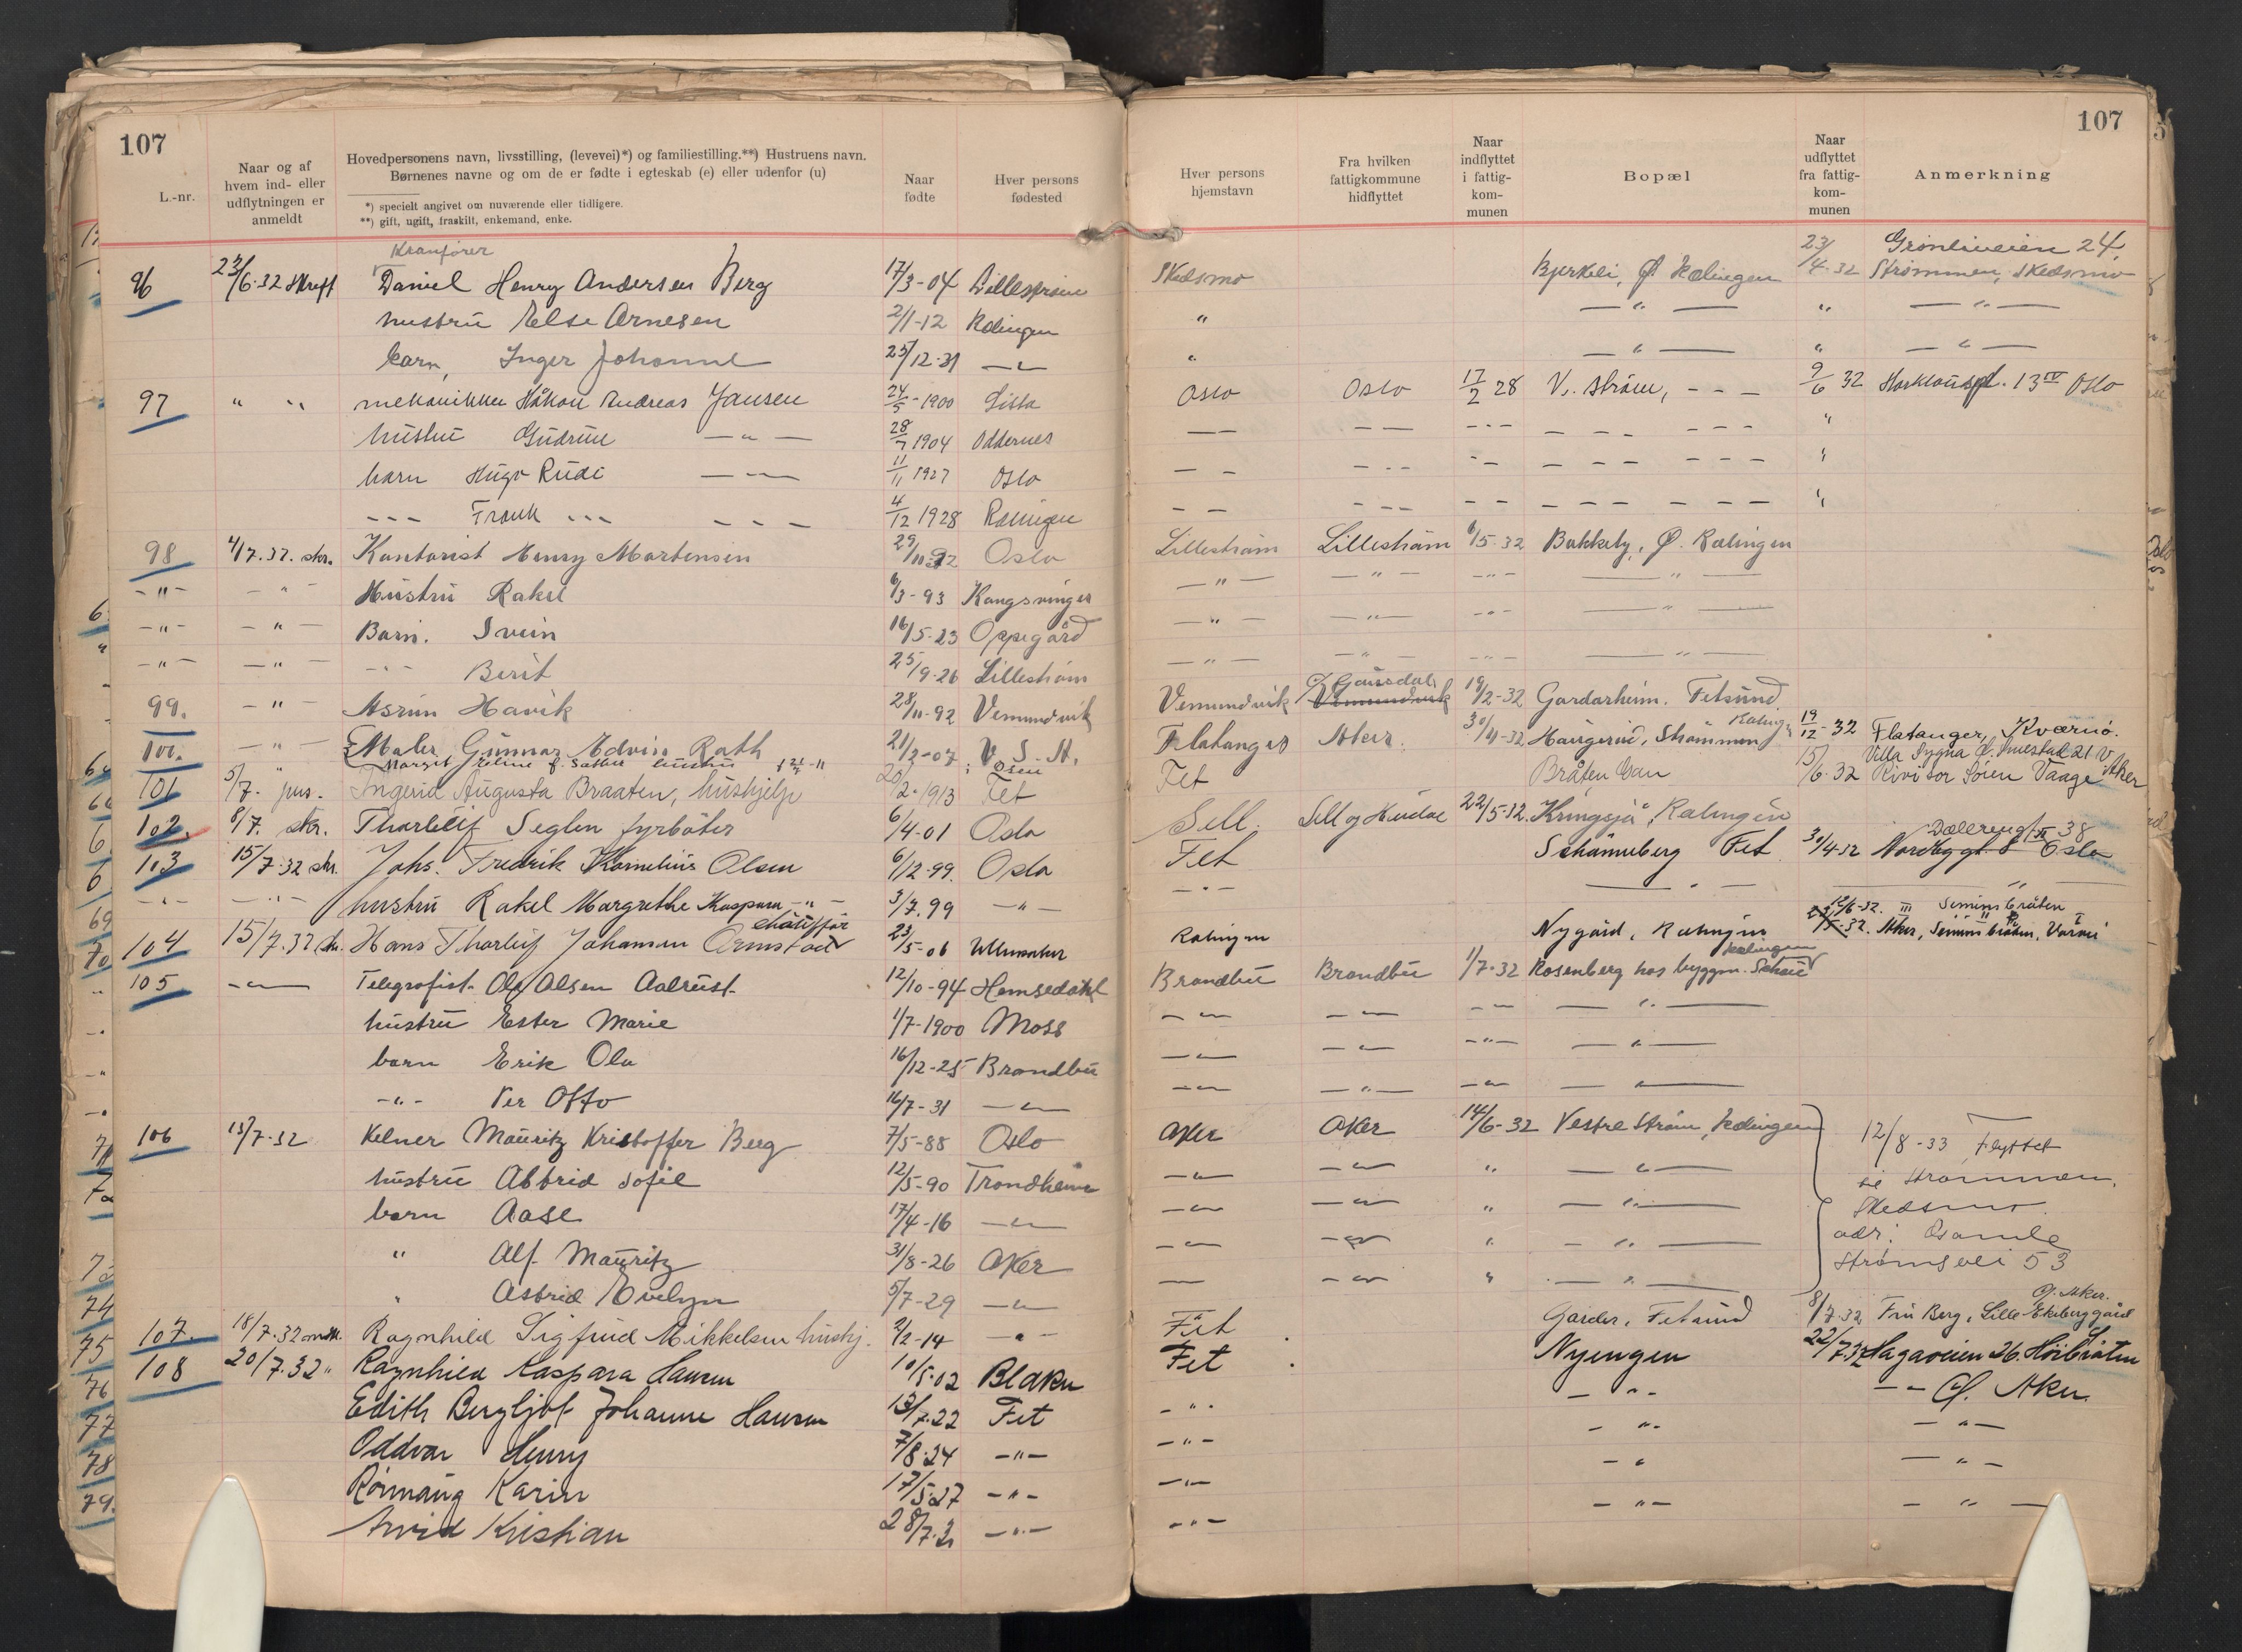 107
107
L.-nr.
Naar og af hvem ind- eller udflytningen er anmeldt
Hovedpersonens navn, livsstilling, (levevei)*) og familiestilling.**) Hustruens navn. Børnenes navne og om de er fødte i egteskab (e) eller udenfor (u)
*) specielt angivet om nuværende eller tidligere.
**) gift, ugift, fraskilt, enkemand, enke.
Naar fødte
Hver persons fødested
Hver persons hjemstavn
Fra hvilken fattigkommune hidflyttet
Naar indflyttet i fattig-kom-munen
Bopæl
Naar udflyttet fra fattig-kom-munen
Anmerkning
Kranfører
96 23/6.32 Daniel Henry Andersen Berg 17/3-04 Lillestrøm Skedsmo Bjerkeli, Ø Rælingen 23/4.32 Grønliveien 24, Strømmen, Skedsmo
hustru Else Arnesen 2/1-12 Rælingen " — " — " — " —
barn, Inger Johanne 25/12-31 — " — " — " — " — " —
97 " " mekanikker Håkon Andreas Jansen 24/5-1900 Lista Oslo Oslo 17/2 28 V. Strøm, - - 9/6 32 13 IV Oslo
hustru Gudrun — " — 28/7 1904 Oddernes — — — — - - - — — — — — — "
barn Hugo Rudi — " — 11/11 1927 Oslo — — - - - - - — — — — — — "
- - - Frank - - - — — — 4/12 1928 Rælingen — — — — — — — — — — — — — "
98 4/7.32. skr. Kontorist Henry Martensen 29/11-92 Oslo Lillestrøm Lillestrøm 6/5-32 Bakkely, Ø. Rælingen
- " - - " Hustru Rakel 6/3-93 Kongsvinger — " — — " — - " - — " —
- " - - " - Barn. Svein 16/5-23 Oppegård — " — — " — - " - — " —
- " - - " - - " - Berit 25/9-26 Lillestrøm — " — — " — - " - — " —
99. - " - Asrun Havik 28/11-92 Vemundvik Vemundvik Ø. Gausdal 19/2-32 Gardarheim. Fetsund
100. - " - Maler Gunnar Edvin Rath 21/2-07 U. S. A. Flatanger Aker. 30/4-32 Haugerud, Strømmen 19/12-32 Flatanger, Kværnø.
hustru Osen
101 5/7. Ingerid Augusta Braaten, hushjelp 20/2-1913 Fet Fet Bråten Gan 15/6-32 Revisor Søren Vaage Aker
102. 8/7. skr. Thorleif Seglen fyrbøter 6/4-01 Oslo Sell. Sell og Heidal 22/5-32. Kringsjå, Rælingen
103 15/7-32 skr. Johs. Fredrik Kornelius Olsen 6/12-99. Oslo Fet Schønneberg Fet 30/4-32 Oslo
- " - - " - hustru Rakel Margrethe Kaspara - " - 3/7.99 - " - - " - — " — — " —
104 15/7.32 skr. Hans Thorleif Johansen Ørmstad chauffør 23/5-06 Ullensaker Rælingen Nygård, Rælingen
105 - " - Telegrafist. Ole Olsen Aalrust. 12/10-94 Hemsedahl Brandbu Brandbu 1/7-32 Rosenberg hos byggm. Rælingen
hustru Ester Marie 1/7-1900 Moss — " — — " — - " - — " —
barn Erik Ola 16/12-25 Brandbu — " — — " — - " - — " —
- " - Per Otto 16/7-31 — " — — " — — " — - " - — " —
106 15/7-32 Kelner Mauritz Kristoffer Berg 7/5-88 Oslo Aker Aker 14/6-32 Vestre Strøm, Rælingen 12/8-33 Flyttet
hustru Astrid Sofie 12/5-90 Trondheim — " — — " — " — " — Strømmen,
barn Aase 17/4-16 — " — — " — — " — " — " — Skedsmo.
" Alf Mauritz 31/8-26 Aker — " — — " — " — " — adr: Gamle
" Astrid Evelyn 5/7-29 — " — — — " — " — " — Strømsvei 53
107. 18/7.32 Ragnhild Sigfrid Mikkelsen hushj. 2/2-14 - " - Fet Garder, Fetsund 8/7.32 Fru Berg, Lille Ekeberg gård Ø. Aker.
108 20/7.32 " Ragnhild Kaspara Hansen 10/5.02 Blaker Fet Nyengen 22/7.32 Hagaveien 26. Høibråten
Edith Bergljot Johanne Hansen 13/7.22 Fet - " - - " - - - Ø. Aker.
Oddvar Henry 7/8.24 - " - - " - - " - - " -
Rønnaug Karin 17/5.27 - " - - " - - " - " -
Arvid Kristian 28/7.31 - " - - " - - " - - " -